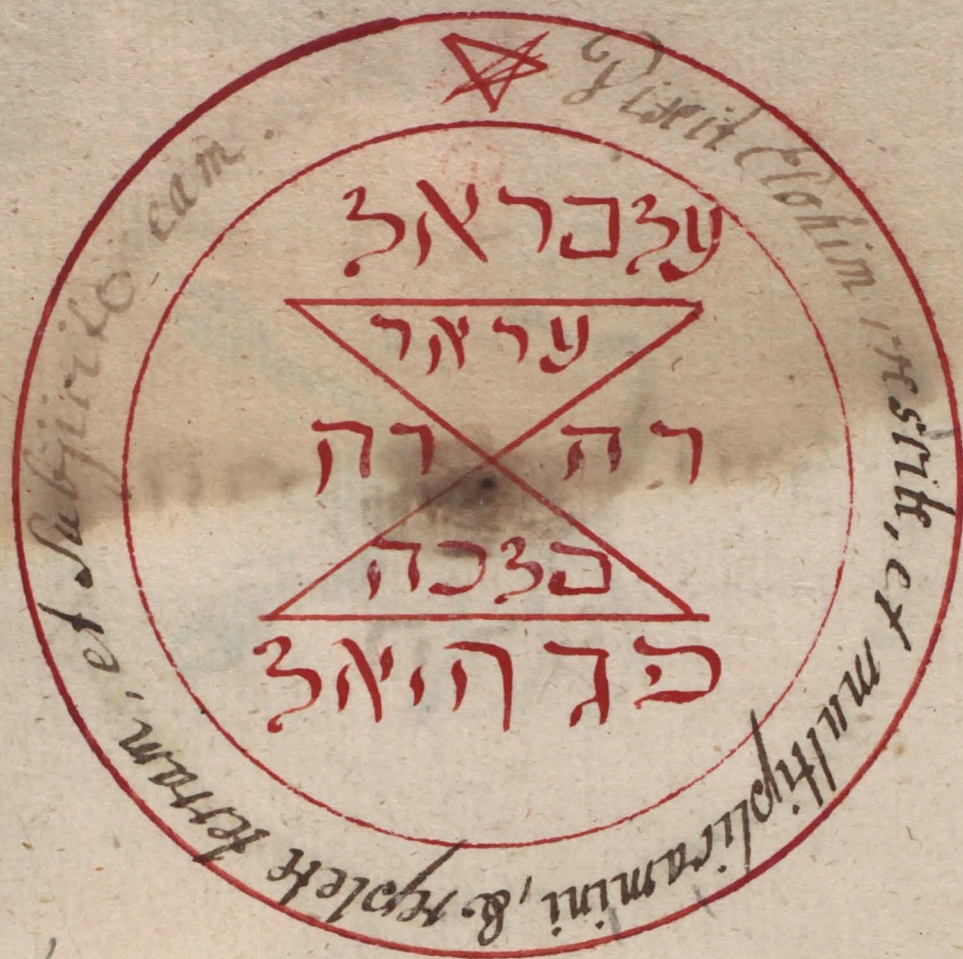 Dixit Elohim crescite, et multiplicamini, & replete terram, et subjicite eam.
עצפראל
עראר
רה רה
פצכה
פגהיאל